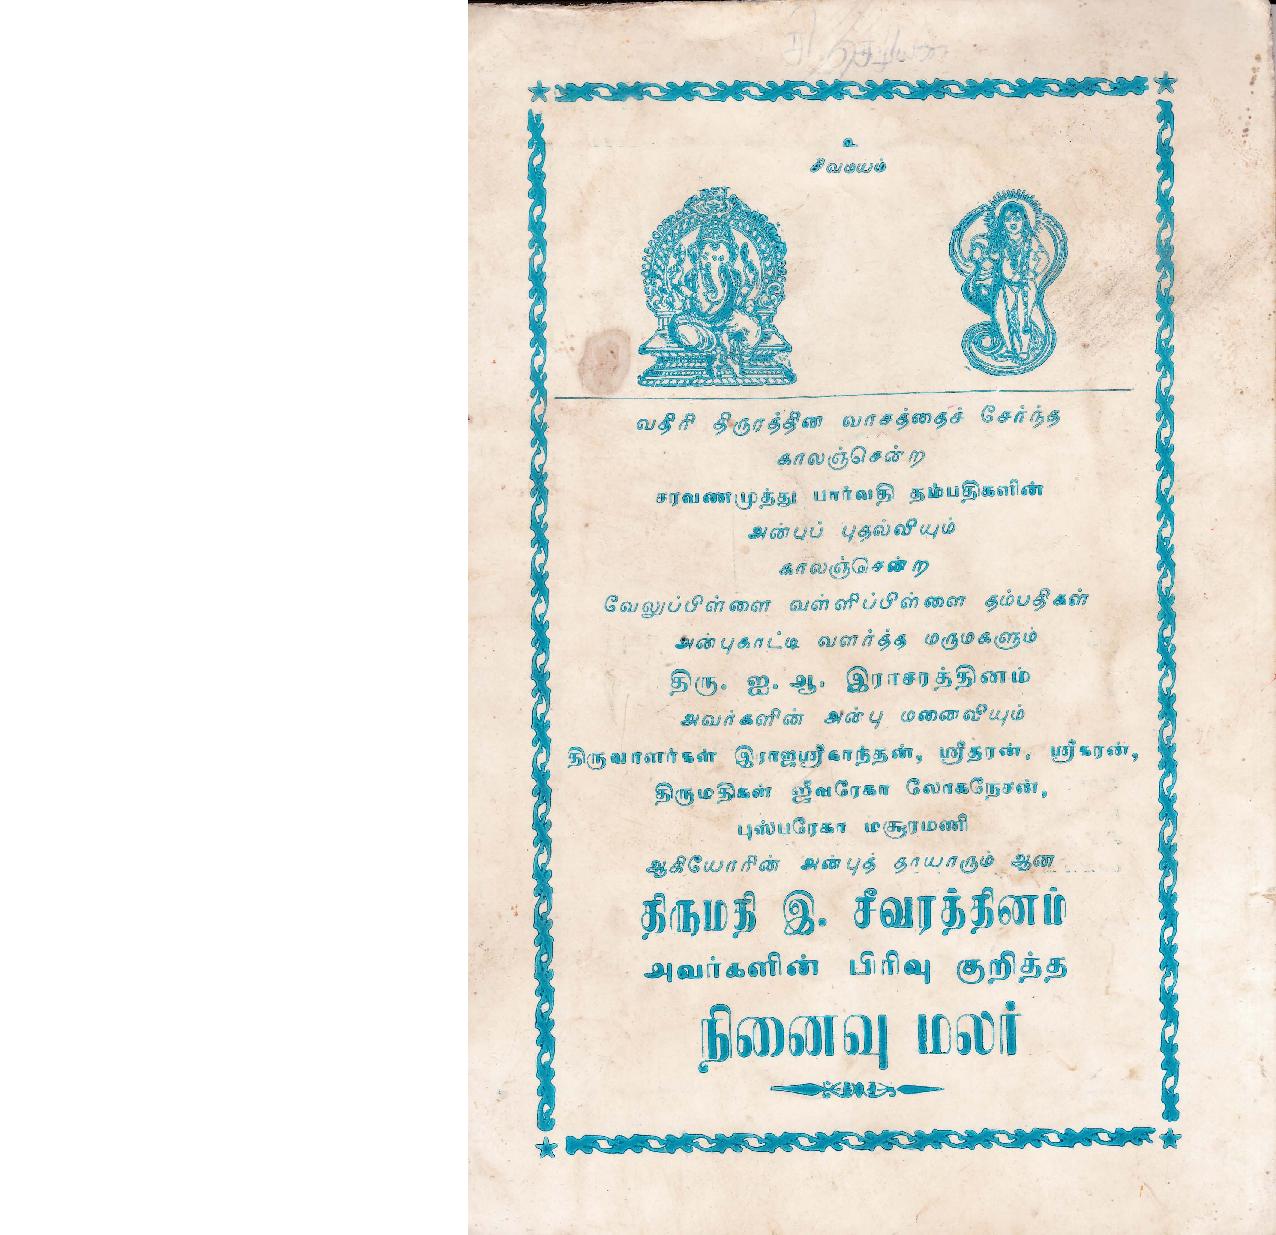 உ
சிவமயம்
வதிரி திருரத்தின வாசத்தைச் சேர்ந்த
காலஞ்சென்ற
சரவணமுத்து பார்வதி தம்பதிகளின்
அன்புப் புதல்வியும்
காலஞ்சென்ற
வேலுப்பிள்ளை வள்ளிப்பிள்ளை தம்பதிகள்
அன்புகாட்டி வளர்த்த மருமகளும்
திரு. ஐ. ஆ. இராசரத்தினம்
அவர்களின் அன்பு மனைவியும்
திருவாளர்கள் இராஜஸ்ரீகாந்தன், ஸ்ரீதரன், ஸ்ரீகரன்,
திருமதிகள் ஜீவரேகா லோகநேசன்,
புஸ்பரேகா மகுரமணி
ஆகியோரின் அன்புத் தாயாரும் ஆன
திருமதி இ. சீவரத்தினம்
அவர்களின் பிரிவு குறித்த
நினைவு மலர்